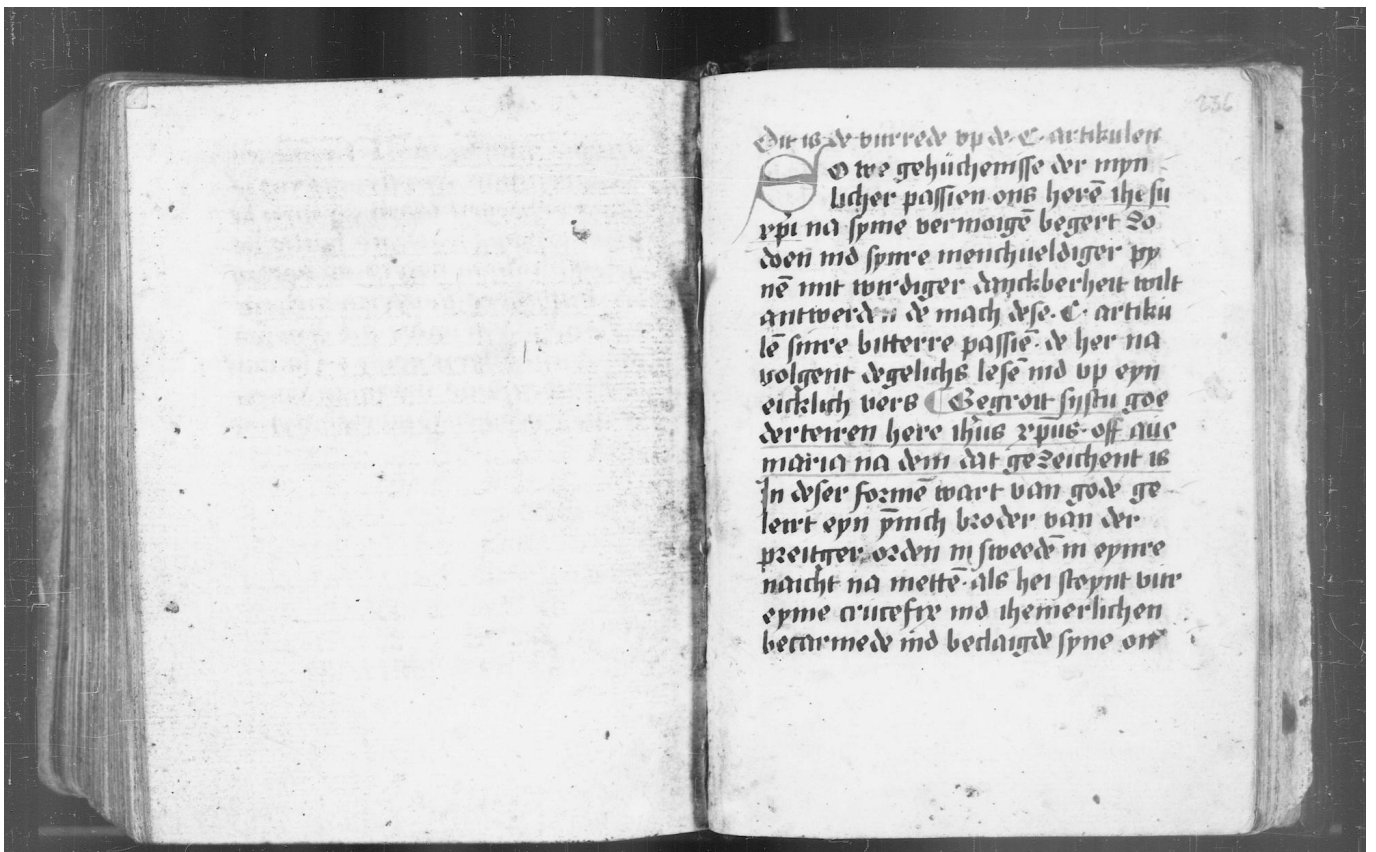 236
Dit is de vurrede vp de · C · artikulen
So we gehuchenisse der myn
licher passien ons herē ihesu
xp̄i na syme vermoigē begert zo
doen ind synre menchueldiger py
nē mit wirdiger danckberheit wilt
antwerden de mach dese · C · artiku
lē sinre bitterre passiē · de her na
volgent degelichs lesē ind vp eyn
eicklich vers Gegroit sijstu goe
derteiren here ih̄us xp̄us · off aue
maria na dem dat gezeichent is
In deser formē wart van gode ge
leirt eyn ȳnich broder van der
preitger orden in sweedē in eynre
naicht na mettē · als hei steynt vur
eyme crucefix ind ihemerlichen
becarmede ind beclaigde syne